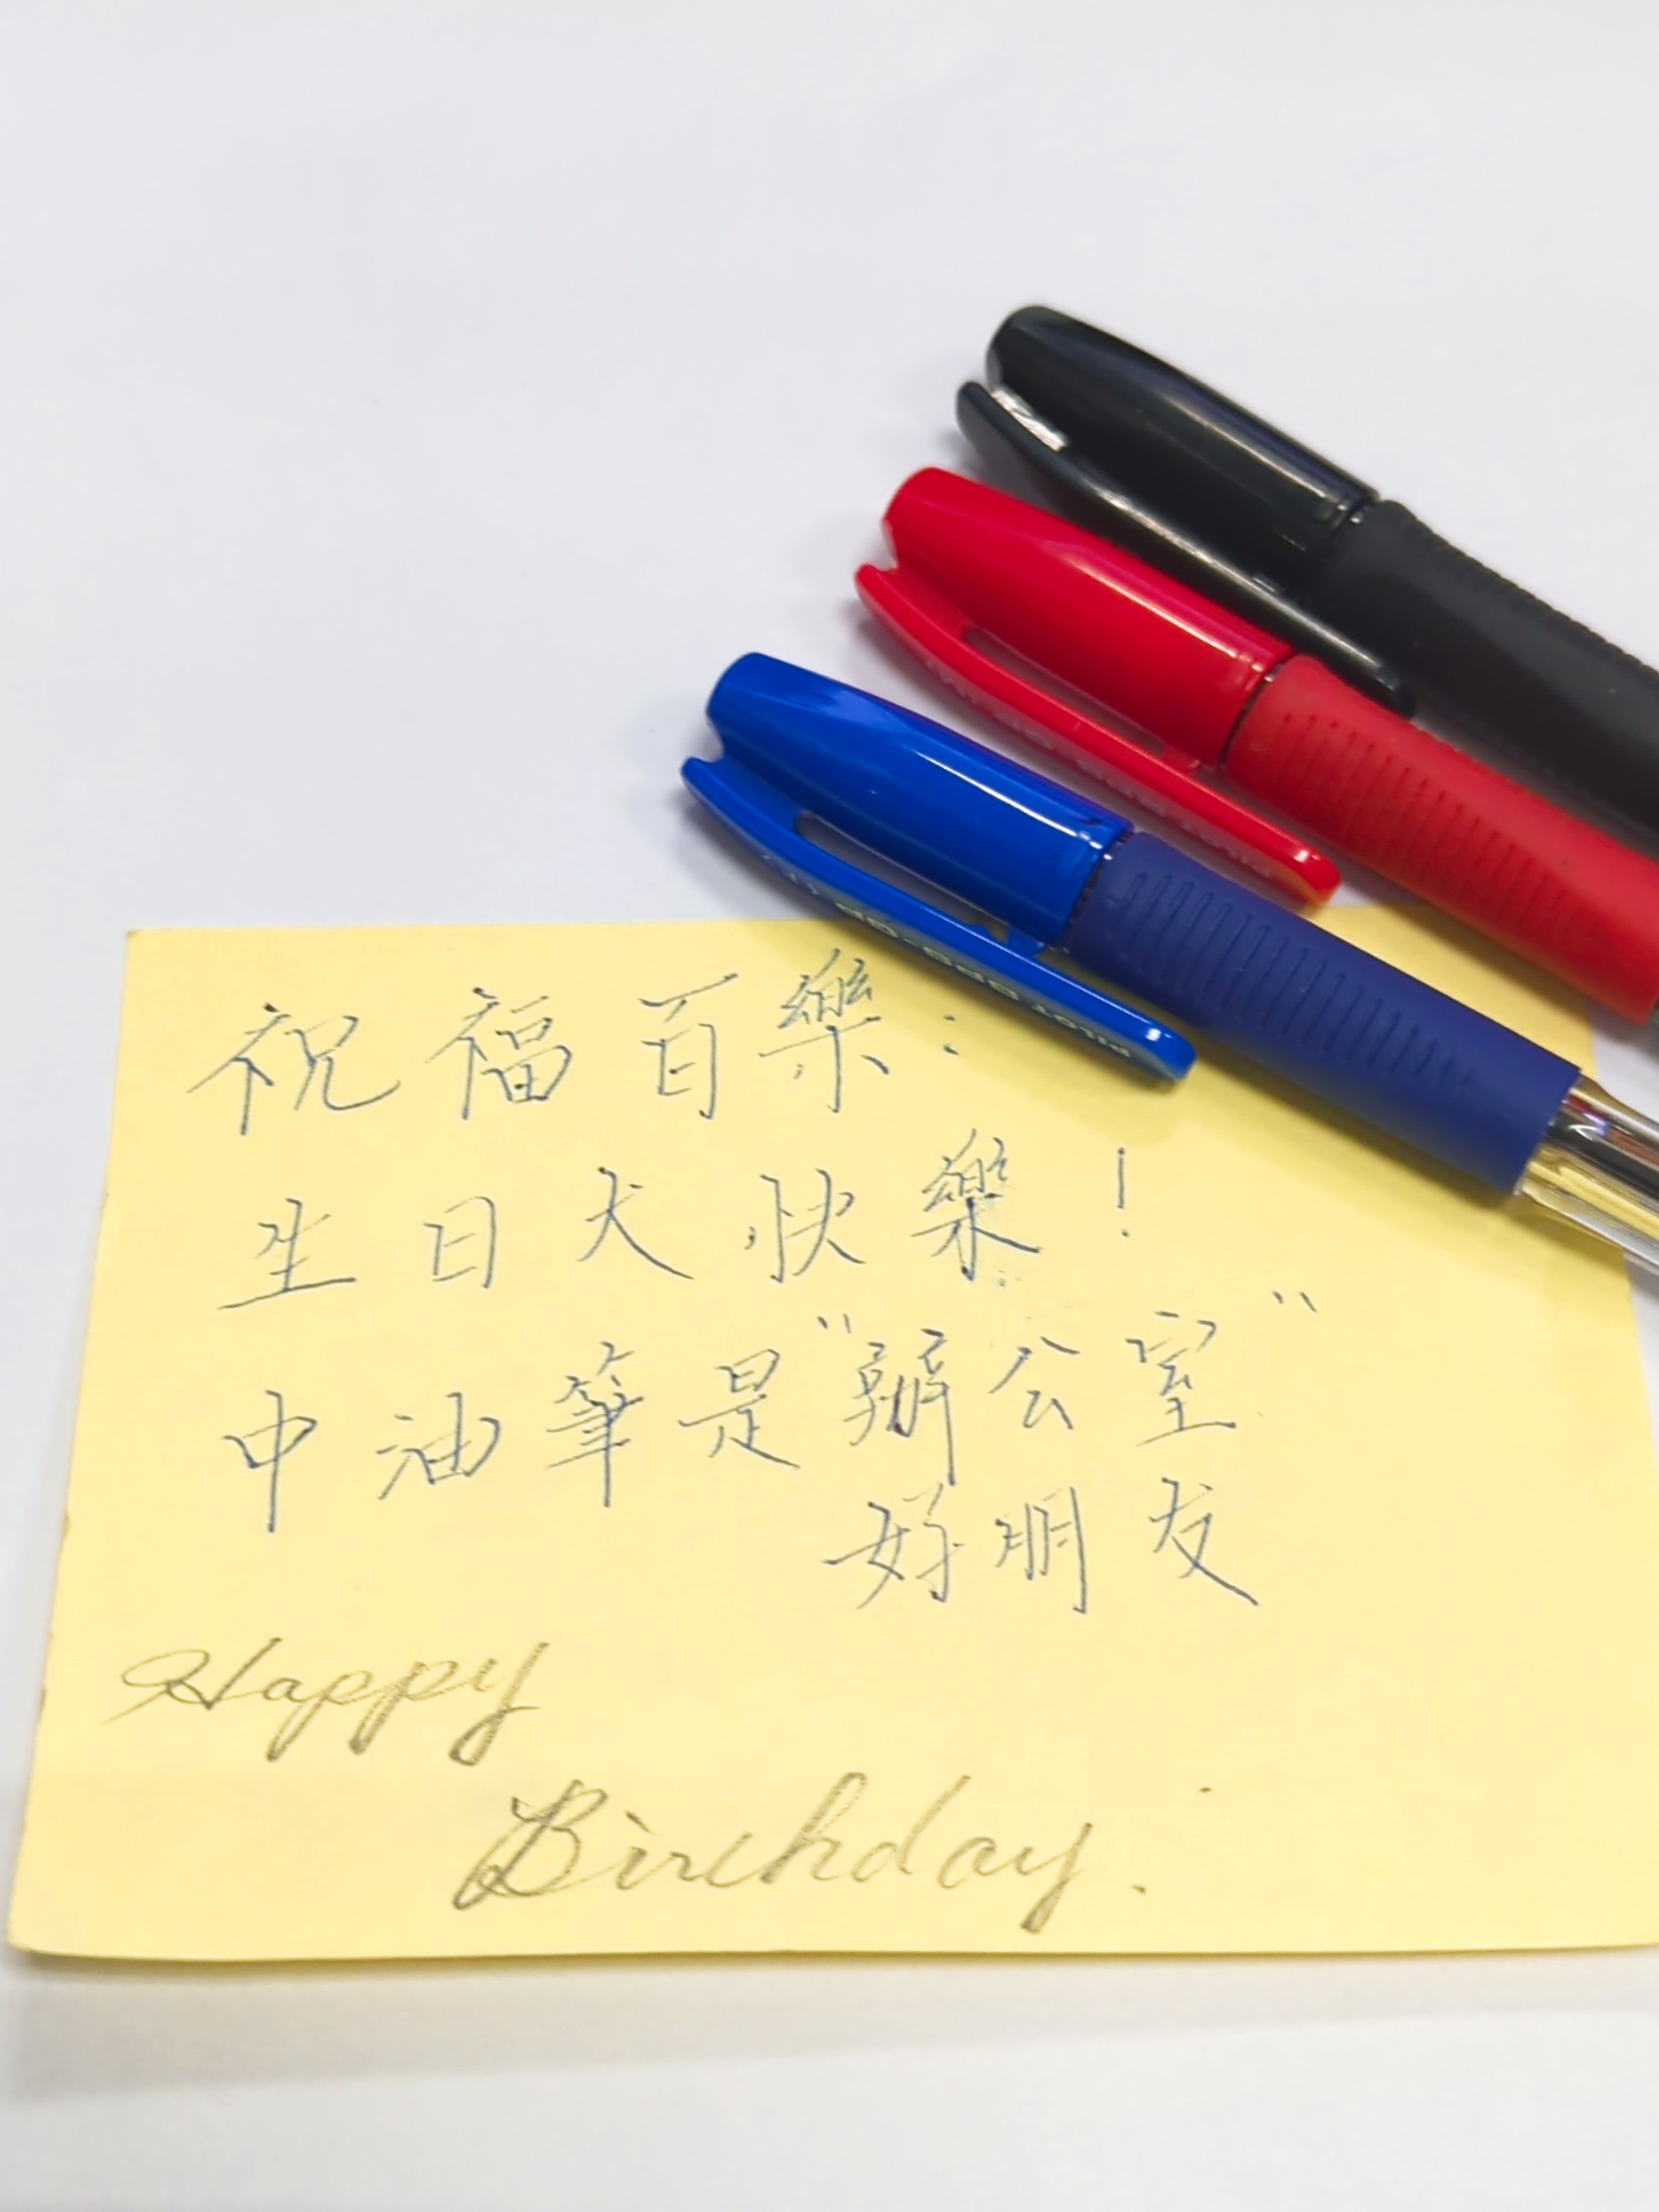 祝福百樂：
生日大快樂！
中油筆是"辦公室"
好朋友
Happy
Birthday.
PILOT BPS-GP